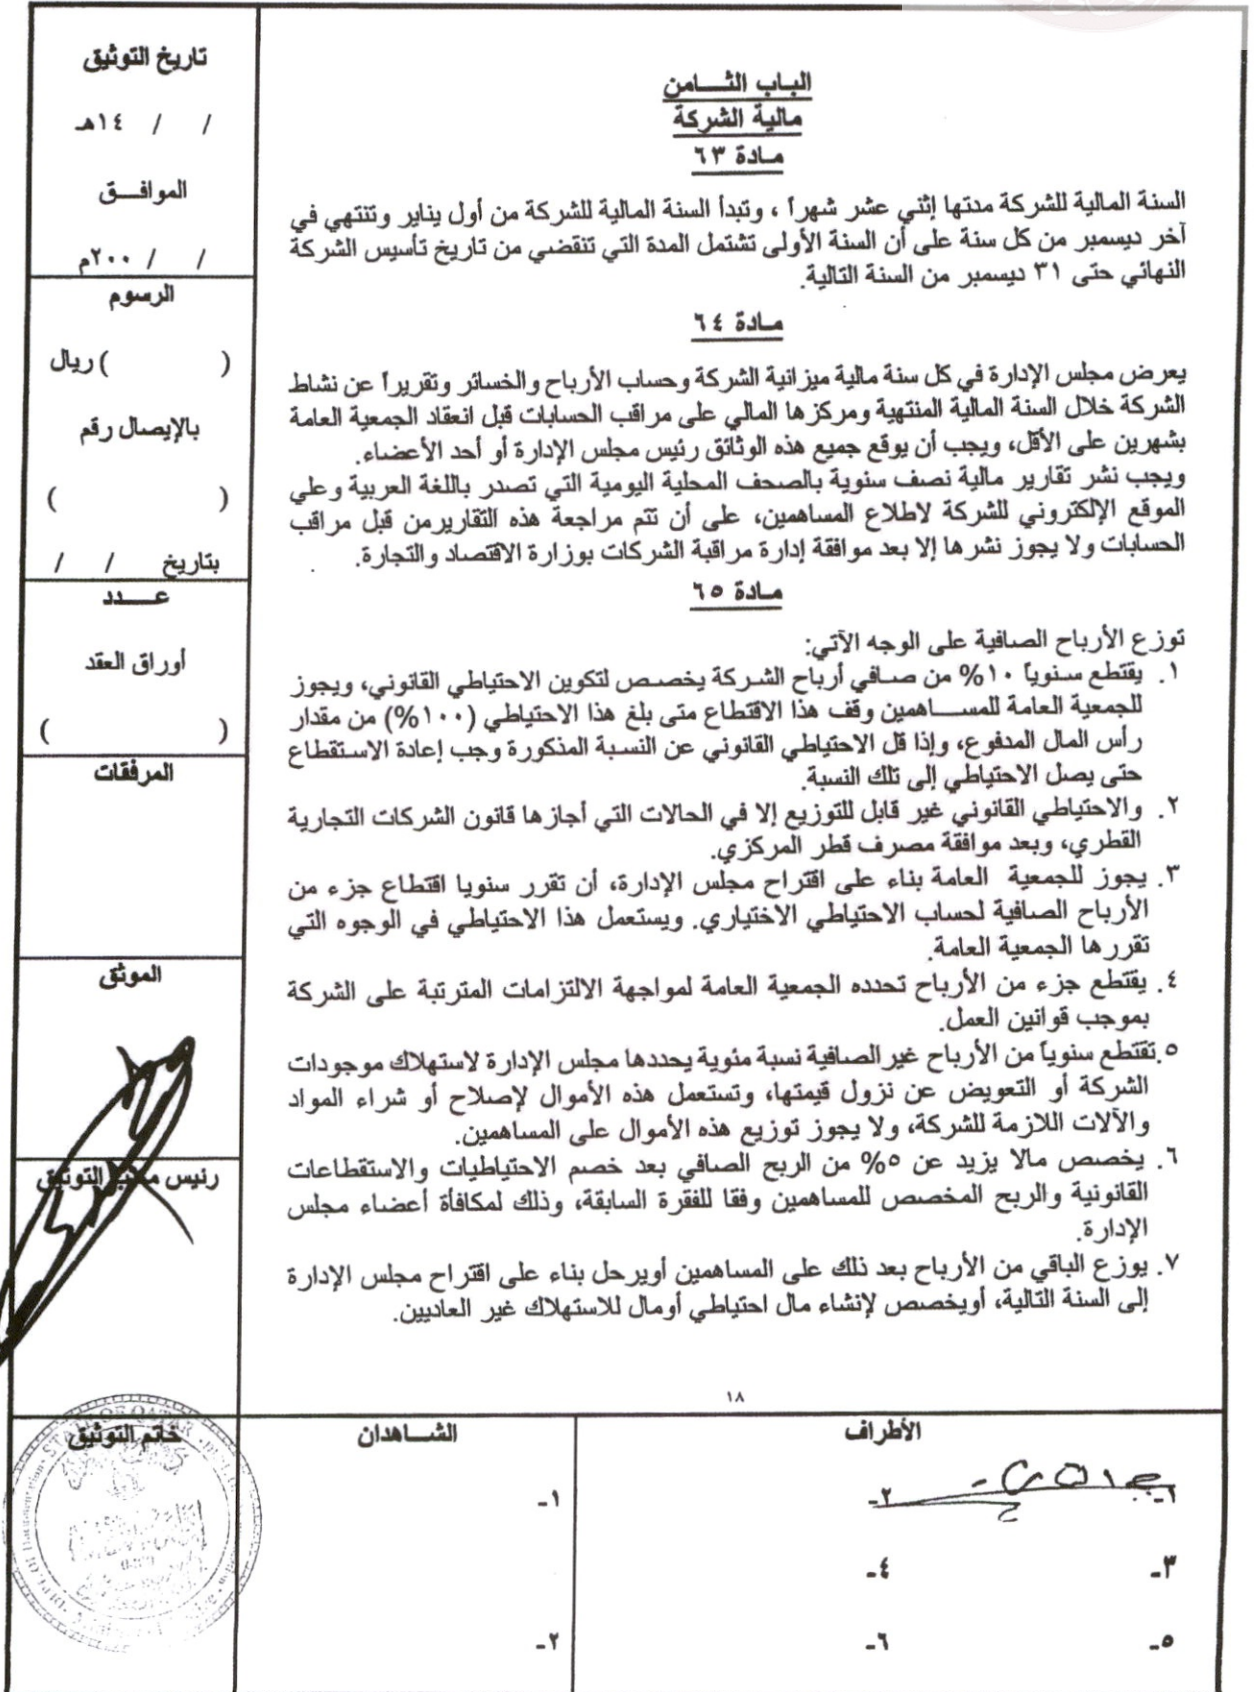 الباب الثـــامن
مالية الشركة
مـادة ٦٣
السنة المالية للشركة مدتها إثني عشر شهراً ، وتبدأ السنة المالية للشركة من أول يناير وتنتهي في
آخر ديسمبر من كل سنة على أن السنة الأولى تشتمل المدة التي تنقضي من تاريخ تأسيس الشركة
النهائي حتى ٣١ ديسمبر من السنة التالية.
مـادة ٦٤
يعرض مجلس الإدارة في كل سنة مالية ميزانية الشركة وحساب الأرباح والخسائر وتقريراً عن نشاط
الشركة خلال السنة المالية المنتهية ومركزها المالي على مراقب الحسابات قبل انعقاد الجمعية العامة
بشهرين على الأقل، ويجب أن يوقع جميع هذه الوثائق رئيس مجلس الإدارة أو أحد الأعضاء.
ويجب نشر تقارير مالية نصف سنوية بالصحف المحلية اليومية التي تصدر باللغة العربية وعلي
الموقع الإلكتروني للشركة لاطلاع المساهمين، على أن تتم مراجعة هذه التقاريرمن قبل مراقب
الحسابات ولا يجوز نشرها إلا بعد موافقة إدارة مراقبة الشركات بوزارة الاقتصاد والتجارة.
مـادة ٦٥
توزع الأرباح الصافية على الوجه الآتي:
١. يقتطع سنوياً ١٠% من صافي أرباح الشركة يخصص لتكوين الاحتياطي القانوني، ويجوز
للجمعية العامة للمســـاهمين وقف هذا الاقتطاع متى بلغ هذا الاحتياطي (١٠٠%) من مقدار
رأس المال المدفوع، وإذا قل الاحتياطي القانوني عن النسبة المذكورة وجب إعادة الاستقطاع
حتى يصل الاحتياطي إلى تلك النسبة.
٢. والاحتياطي القانوني غير قابل للتوزيع إلا في الحالات التي أجازها قانون الشركات التجارية
القطري، وبعد موافقة مصرف قطر المركزي.
٣. يجوز للجمعية العامة بناء على اقتراح مجلس الإدارة، أن تقرر سنويا اقتطاع جزء من
الأرباح الصافية لحساب الاحتياطي الاختياري. ويستعمل هذا الاحتياطي في الوجوه التي
تقررها الجمعية العامة.
٤. يقتطع جزء من الأرباح تحدده الجمعية العامة لمواجهة الالتزامات المترتبة على الشركة
بموجب قوانين العمل.
٥.تقتطع سنوياً من الأرباح غيرالصافية نسبة مئوية يحددها مجلس الإدارة لاستهلاك موجودات
الشركة أو التعويض عن نزول قيمتها، وتستعمل هذه الأموال لإصلاح أو شراء المواد
والآلات اللازمة للشركة، ولا يجوز توزيع هذه الأموال على المساهمين.
٦. يخصص مالا يزيد عن ٥% من الربح الصافي بعد خصم الاحتياطيات والاستقطاعات
القانونية والربح المخصص للمساهمين وفقا للفقرة السابقة، وذلك لمكافأة أعضاء مجلس
الإدارة.
٧. يوزع الباقي من الأرباح بعد ذلك على المساهمين أويرحل بناء على اقتراح مجلس الإدارة
إلى السنة التالية، أويخصص لإنشاء مال احتياطي أومال للاستهلاك غير العاديين.
١٨
تاريخ التوثيق
/ / ١٤هـ
الموافـــق
/ / ٢٠٠م
الرسوم
( ) ريال
بالإيصال رقم
( )
بتاريخ / /
عــــدد
أوراق العقد
( )
المرفقات
الموثق
رئيس مكتب التوثيق
الأطراف
١- ٢-
٣- ٤-
٥- ٦-
الشـــاهدان
١-
٢-
خاتم التوثيق
STATE OF QATAR